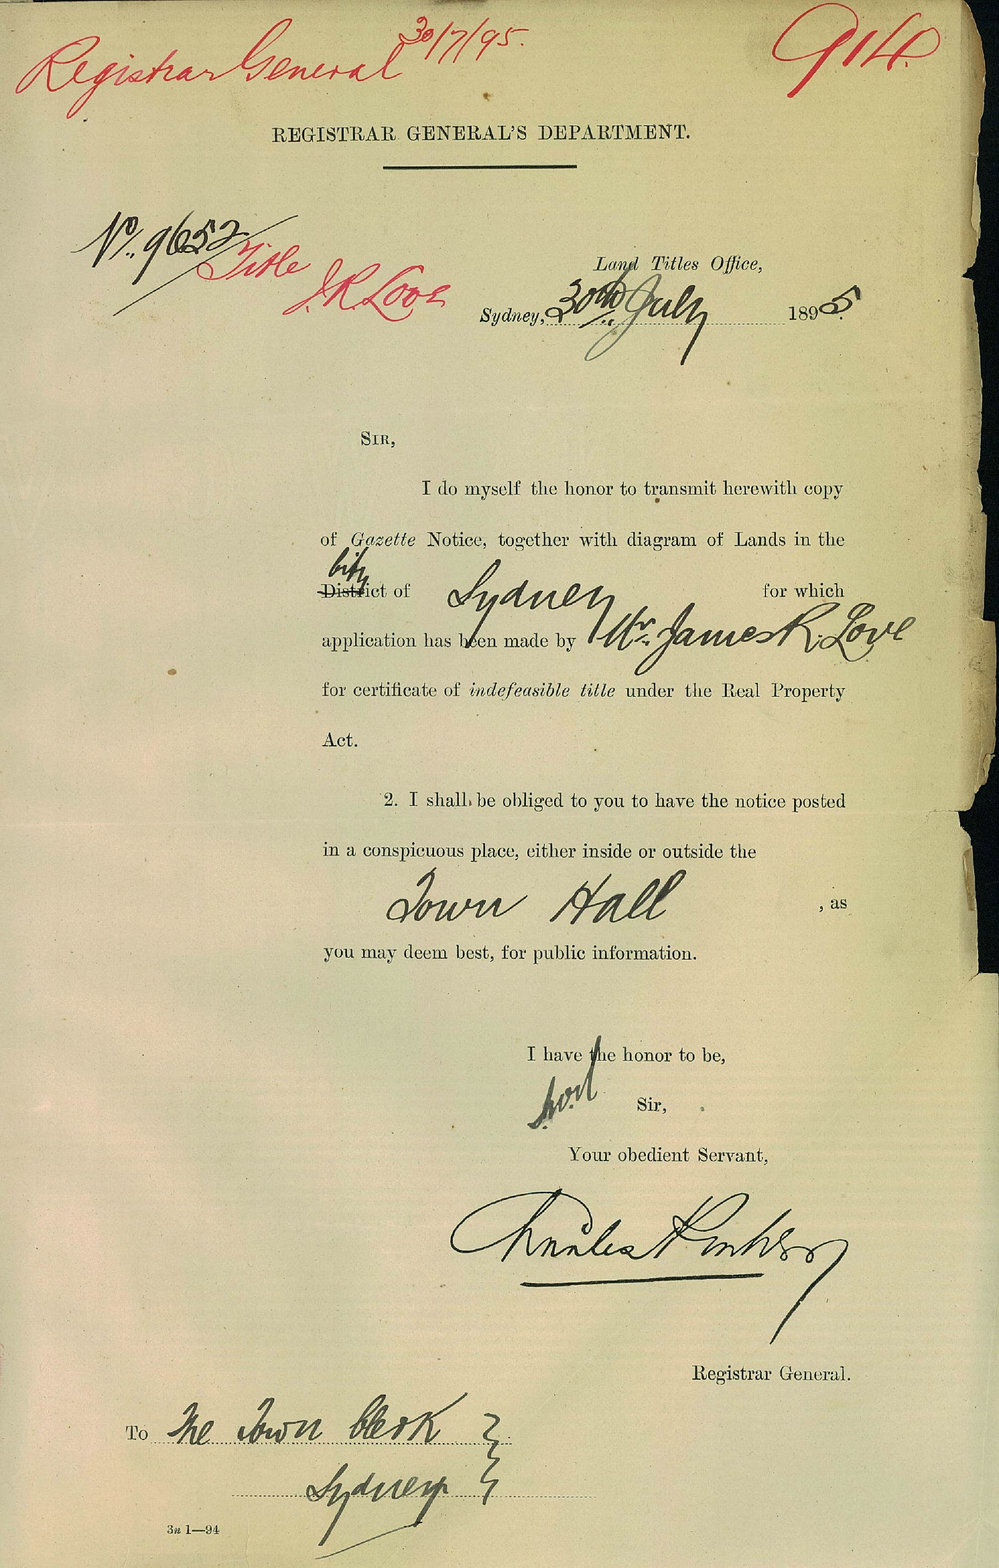 Registrar General 30/7/95.
914.
REGISTRAR GENERAL'S DEPARTMENT.
No. 9652
Title
J. R. Love
Land Titles Office,
Sydney, 30th July 1895.
SIR,
I do myself the honor to transmit herewith copy
of Gazette Notice, together with diagram of Lands in the
City
District of Sydney for which
application has been made by Mr. James R. Love
for certificate of indefeasible title under the Real Property
Act.
2. I shall be obliged to you to have the notice posted
in a conspicuous place, either inside or outside the
Town Hall , as
you may deem best, for public information.
I have the honor to be,
Sir,
Your obedient Servant,
Charles
Registrar General.
To The Town Clerk
Sydney
3n 1—94